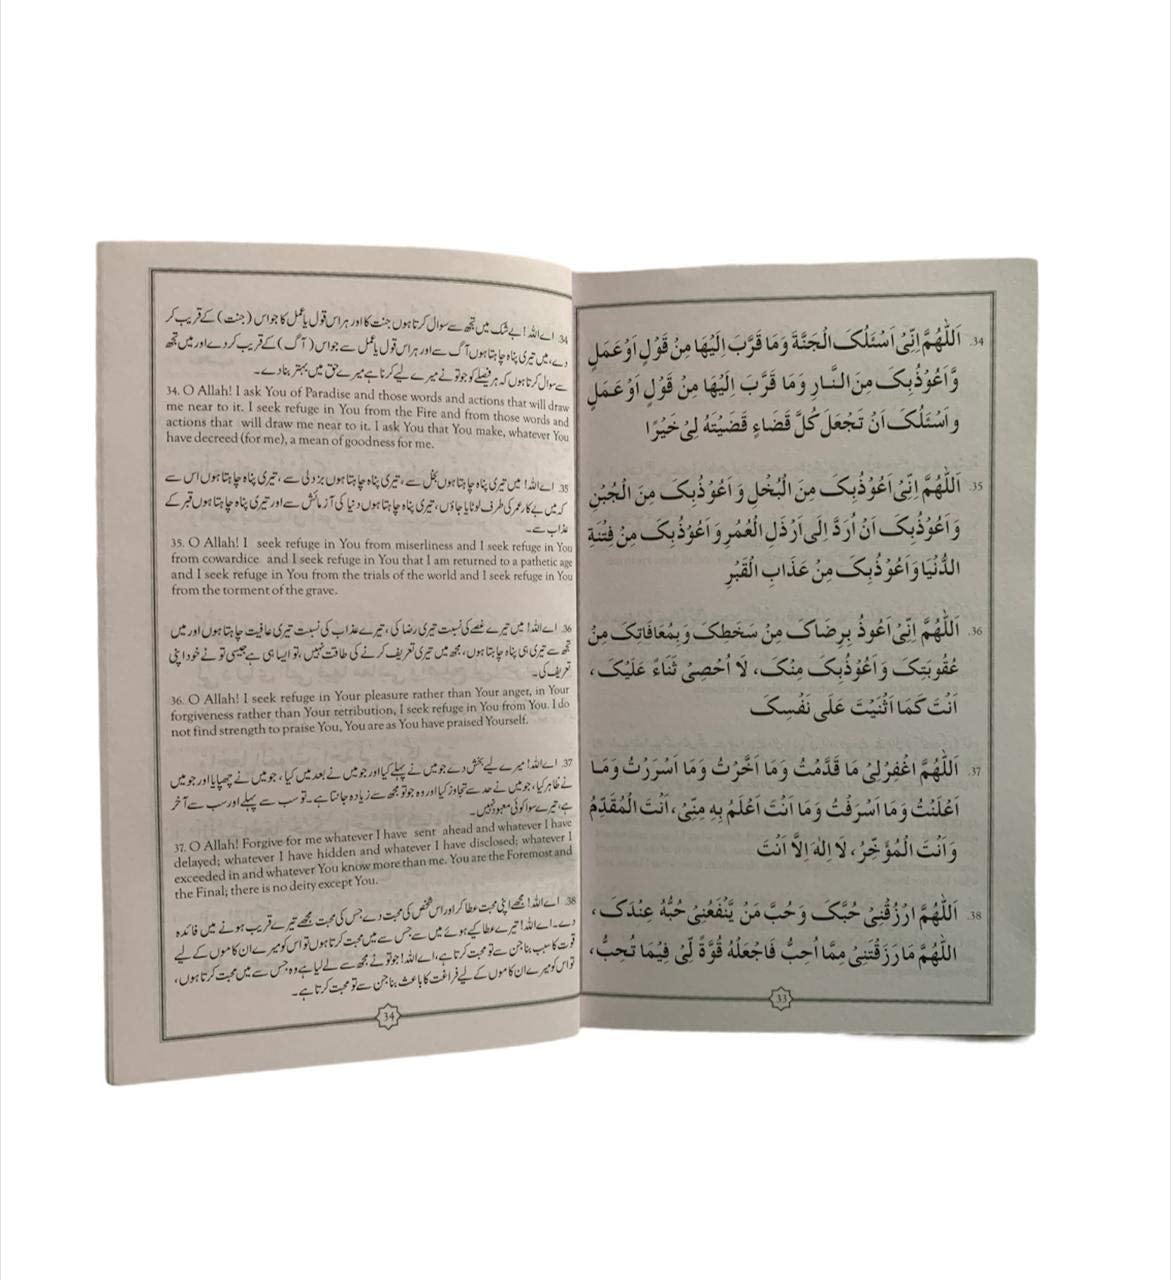 34. اَللّٰهُمَّ اِنِّیْ اَسْئَلُکَ الْجَنَّةَ وَمَا قَرَّبَ اِلَیْهَا مِنْ قَوْلٍ اَوْ عَمَلٍ
وَّاَعُوْذُبِکَ مِنَ النَّارِ وَمَا قَرَّبَ اِلَیْهَا مِنْ قَوْلٍ اَوْ عَمَلٍ
وَاَسْئَلُکَ اَنْ تَجْعَلَ کُلَّ قَضَاءٍ قَضَیْتَهُ لِیْ خَیْرًا
35. اَللّٰهُمَّ اِنِّیْ اَعُوْذُبِکَ مِنَ الْبُخْلِ وَ اَعُوْذُبِکَ مِنَ الْجُبْنِ
وَاَعُوْذُبِکَ اَنْ اُرَدَّ اِلَی اَرْذَلِ الْعُمُرِ وَاَعُوْذُبِکَ مِنْ فِتْنَةِ
الدُّنْیَا وَاَعُوْذُبِکَ مِنْ عَذَابِ الْقَبْرِ
36. اَللّٰهُمَّ اِنِّیْ اَعُوذُ بِرِضَاکَ مِنْ سَخَطِکَ وَبِمُعَافَاتِکَ مِنْ
عُقُوبَتِکَ وَاَعُوْذُبِکَ مِنْکَ، لَا اُحْصِیْ ثَنَاءً عَلَیْکَ،
اَنْتَ کَمَا اَثْنَیْتَ عَلَی نَفْسِکَ
37. اَللّٰهُمَّ اغْفِرْلِیْ مَا قَدَّمْتُ وَمَا اَخَّرْتُ وَمَا اَسْرَرْتُ وَمَا
اَعْلَنْتُ وَمَا اَسْرَفْتُ وَمَا اَنْتَ اَعْلَمُ بِهِ مِنِّیْ، اَنْتَ الْمُقَدِّمُ
وَاَنْتَ الْمُؤَخِّرُ، لَا اِلٰهَ اِلَّا اَنْتَ
38. اَللّٰهُمَّ ارْزُقْنِیْ حُبَّکَ وَحُبَّ مَنْ یَّنْفَعُنِیْ حُبُّهُ عِنْدَکَ،
اَللّٰهُمَّ مَا رَزَقْتَنِیْ مِمَّا اُحِبُّ فَاجْعَلْهُ قُوَّةً لِّیْ فِیْمَا تُحِبُّ،
33
34. اے اللہ! بے شک میں تجھ سے سوال کرتا ہوں جنت کا اور ہر اس قول یا عمل کا جو اس (جنت) کے قریب کر
دے، میں تیری پناہ چاہتا ہوں آگ سے اور ہر اس قول یا عمل سے جو اس (آگ) کے قریب کر دے اور میں تجھ
سے سوال کرتا ہوں کہ ہر فیصلے کو جو تو نے میرے لیے کرنا ہے میرے حق میں بہتر بنا دے۔
34. O Allah! I ask You of Paradise and those words and actions that will draw
me near to it. I seek refuge in You from the Fire and from those words and
actions that will draw me near to it. I ask You that You make, whatever You
have decreed (for me), a mean of goodness for me.
35. اے اللہ! میں تیری پناہ چاہتا ہوں بخل سے، تیری پناہ چاہتا ہوں بزدلی سے، تیری پناہ چاہتا ہوں اس سے
کہ میں بے کار عمر کی طرف لوٹایا جاؤں، تیری پناہ چاہتا ہوں دنیا کی آزمائش سے اور تیری پناہ چاہتا ہوں قبر کے
عذاب سے۔
35. O Allah! I seek refuge in You from miserliness and I seek refuge in You
from cowardice and I seek refuge in You that I am returned to a pathetic age
and I seek refuge in You from the trials of the world and I seek refuge in You
from the torment of the grave.
36. اے اللہ! میں تیرے غصے کی نسبت تیری رضا کی، تیرے عذاب کی نسبت تیری عافیت چاہتا ہوں اور میں
تجھ سے تیری ہی پناہ چاہتا ہوں، مجھ میں تیری تعریف کرنے کی طاقت نہیں، تو ایسا ہی ہے جیسی تو نے خود اپنی
تعریف کی۔
36. O Allah! I seek refuge in Your pleasure rather than Your anger, in Your
forgiveness rather than Your retribution, I seek refuge in You from You. I do
not find strength to praise You, You are as You have praised Yourself.
37. اے اللہ! میرے لیے بخش دے جو میں نے پہلے کیا اور جو میں نے بعد میں کیا، جو میں نے چھپایا اور جو میں
نے ظاہر کیا، جو میں نے حد سے تجاوز کیا اور وہ جو تو مجھ سے زیادہ جانتا ہے۔ تو سب سے پہلے اور سب سے آخر
ہے، تیرے سوا کوئی معبود نہیں۔
37. O Allah! Forgive for me whatever I have sent ahead and whatever I have
delayed; whatever I have hidden and whatever I have disclosed; whatever I
exceeded in and whatever You know more than me. You are the Foremost and
the Final; there is no deity except You.
38. اے اللہ! مجھے اپنی محبت عطا کر اور اس شخص کی محبت دے جس کی محبت مجھے تیرے قریب ہونے میں فائدہ
دے۔ اے اللہ! تیرے عطا کیے ہوئے میں سے جس سے میں محبت کرتا ہوں تو اس کو میرے ان کاموں کے لیے
قوت کا سبب بنا جن سے تو محبت کرتا ہے، اے اللہ! جو تو نے مجھ سے لے لیا ہے وہ جس سے میں محبت کرتا ہوں،
تو اس کو میرے ان کاموں کے لیے فراغت کا باعث بنا جن سے تو محبت کرتا ہے۔
34